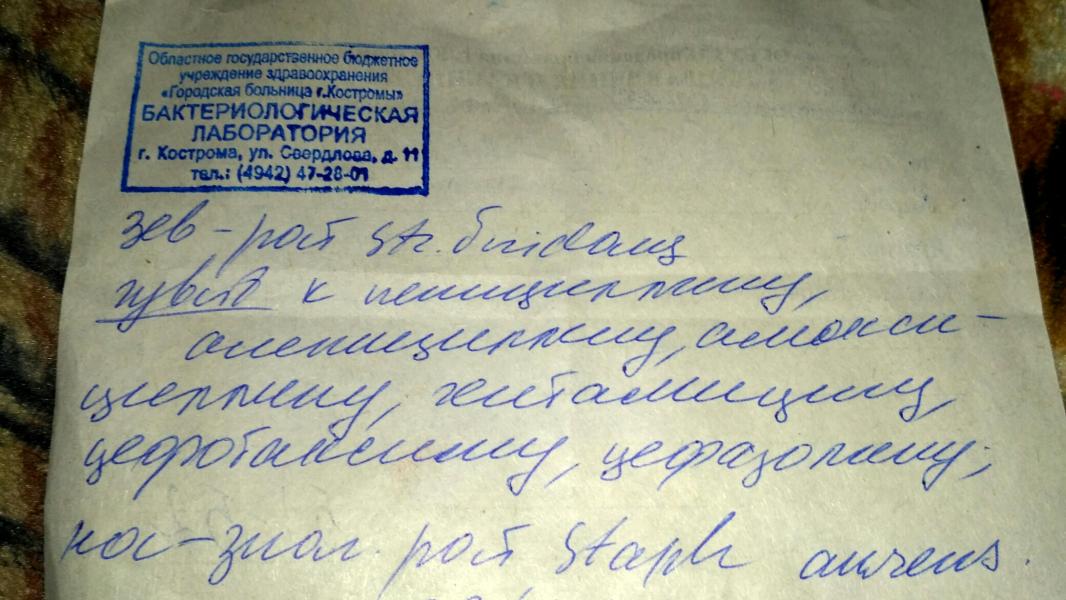 Областное государственное бюджетное
учреждение здравоохранения
«Городская больница г.Костромы»
БАКТЕРИОЛОГИЧЕСКАЯ
ЛАБОРАТОРИЯ
г. Кострома, ул. Свердлова, д. 11
тел.: (4942) 47-28-01
зев - рост Str. viridans
чувст к пенициллину,
ампициллину, амокси-
циллину, гентамицину,
цефотаксиму, цефазолину;
нос - знач. рост Staph aureus.